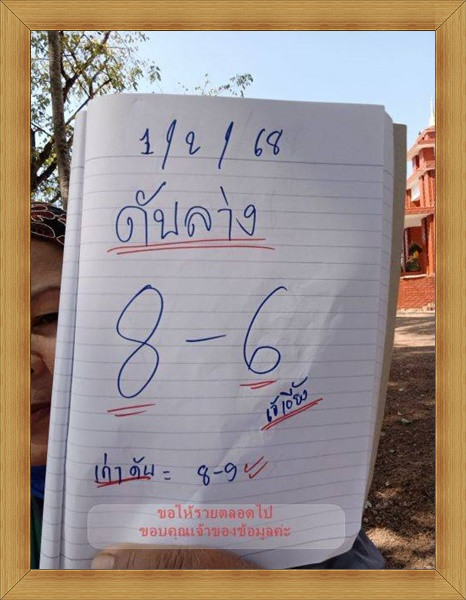 1/2/68
ดับล่าง
8-6
เจ๊เขียว
เก่าดับ = 8-9
ขอให้รวยตลอดไป
ขอบคุณเจ้าของข้อมูลค่ะ